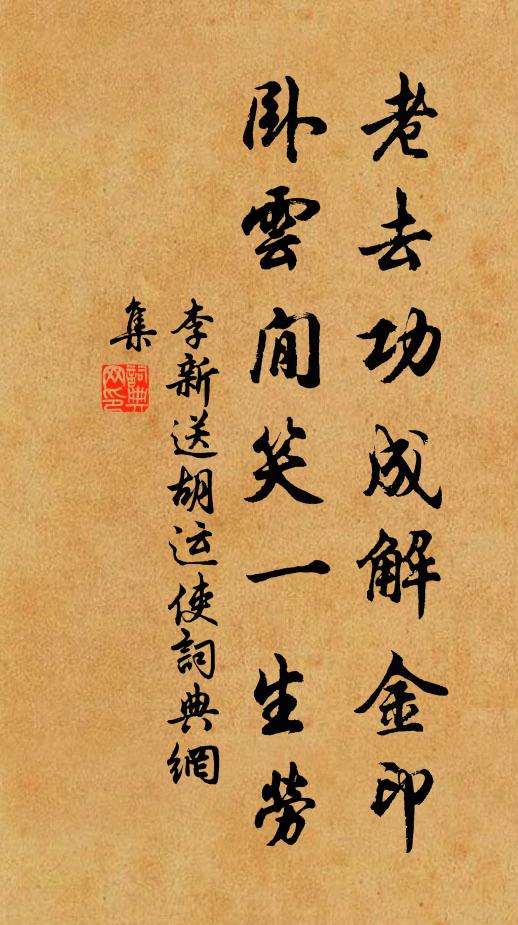 老去功成解金印
卧雲閒笑一生勞
李新送胡运使詞典網
集
詞典
网印